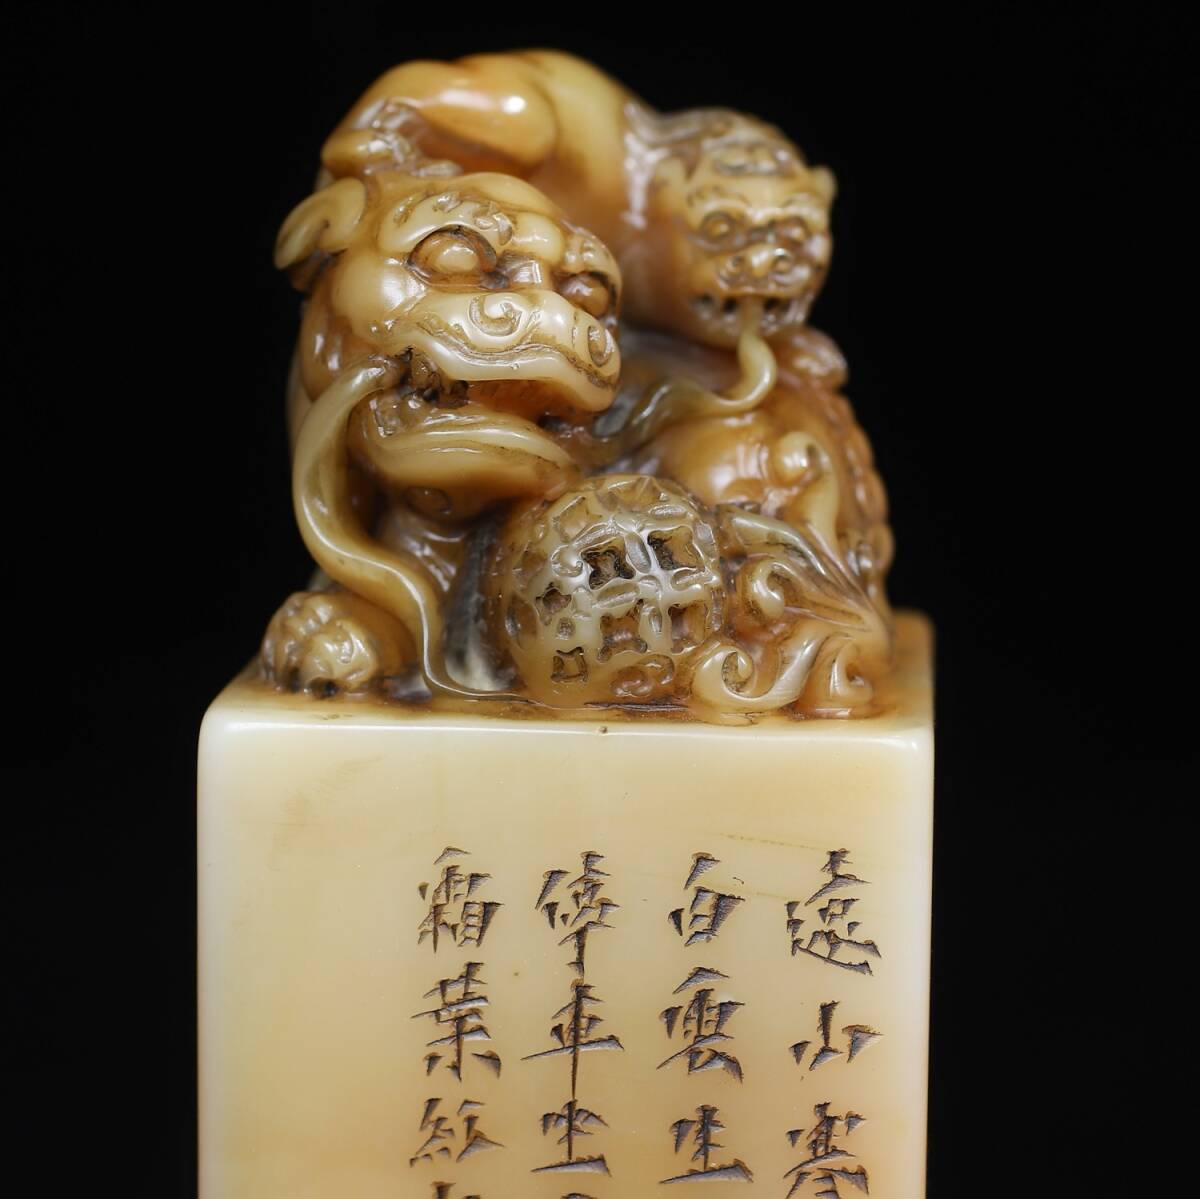 遠山寒
白雲生
停車坐
霜葉紅